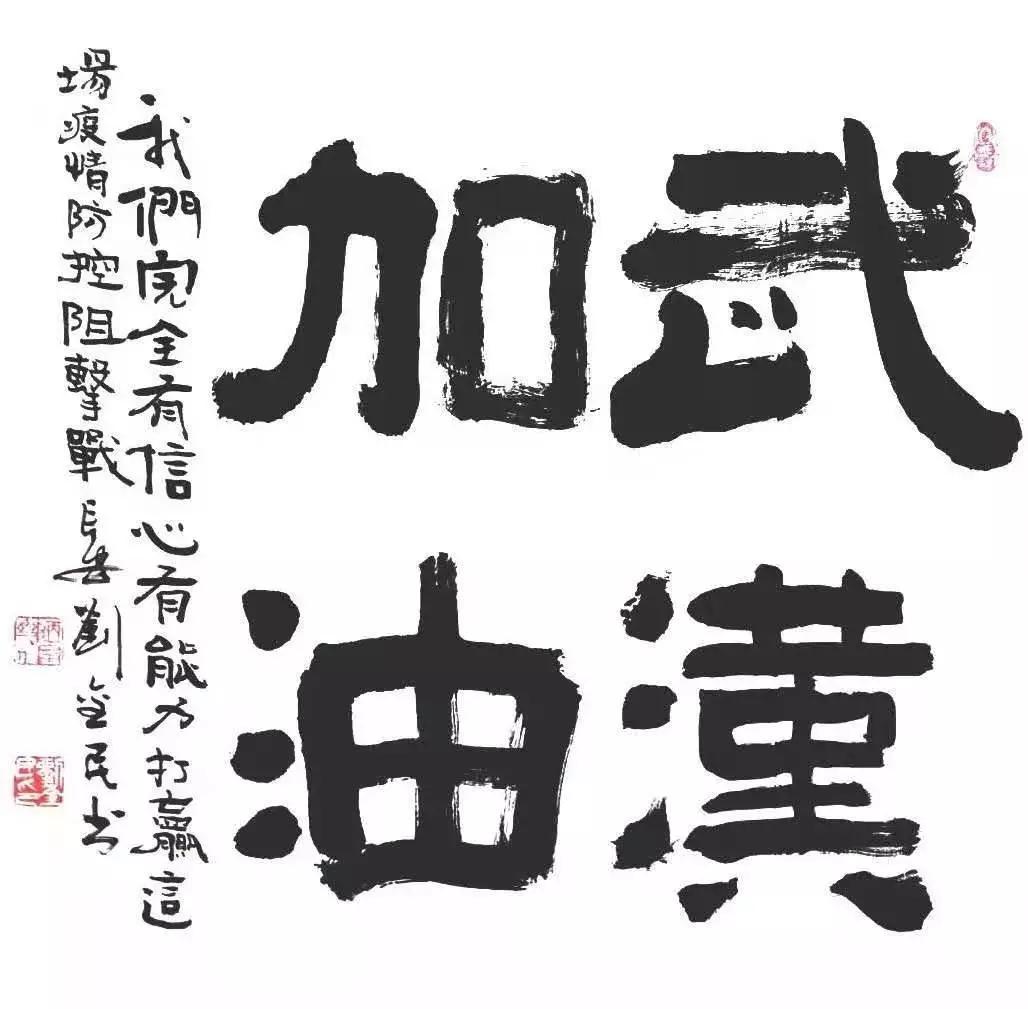 武漢
加油
我們完全有信心有能力打贏這
場疫情防控阻擊戰 劉金民书